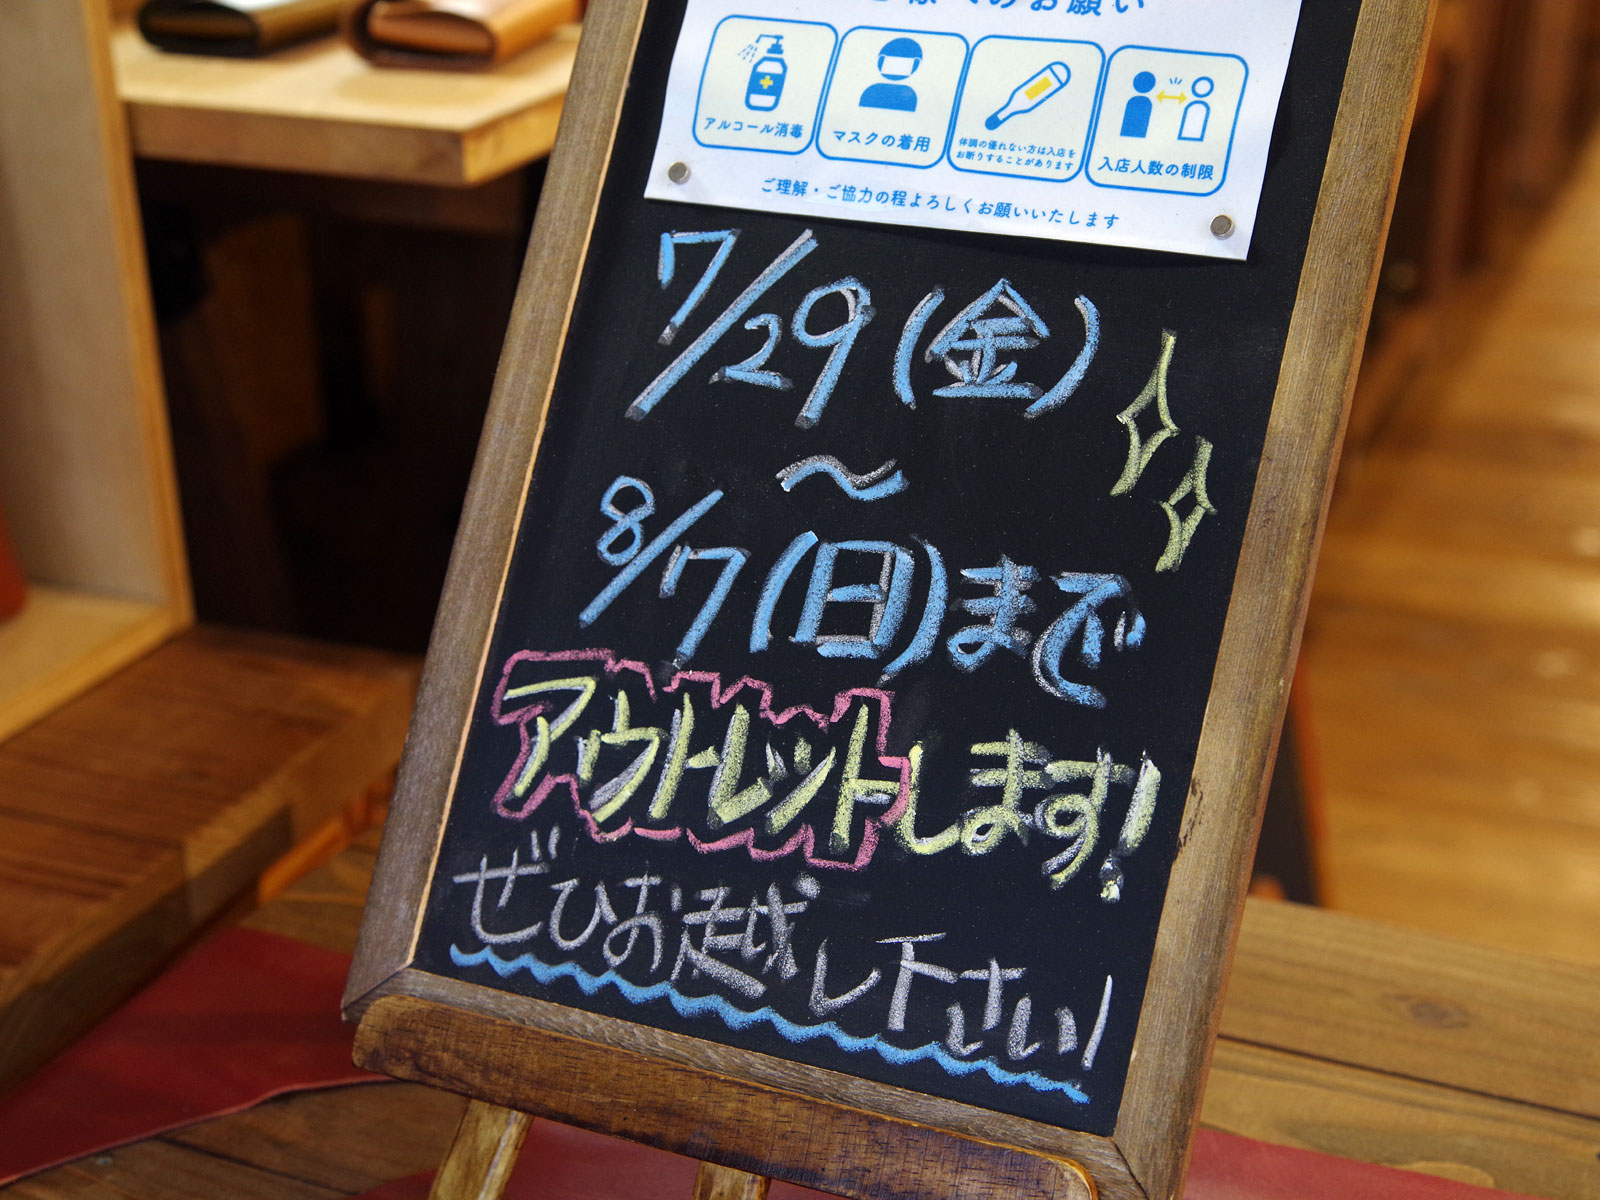 のお願い
アルコール消毒
マスクの着用
体調の優れない方は入店を
お断りすることがあります
入店人数の制限
ご理解・ご協力の程よろしくお願いいたします
7/29(金)
〜
8/7(日)まで
アウトレットします!
ぜひお越し下さい